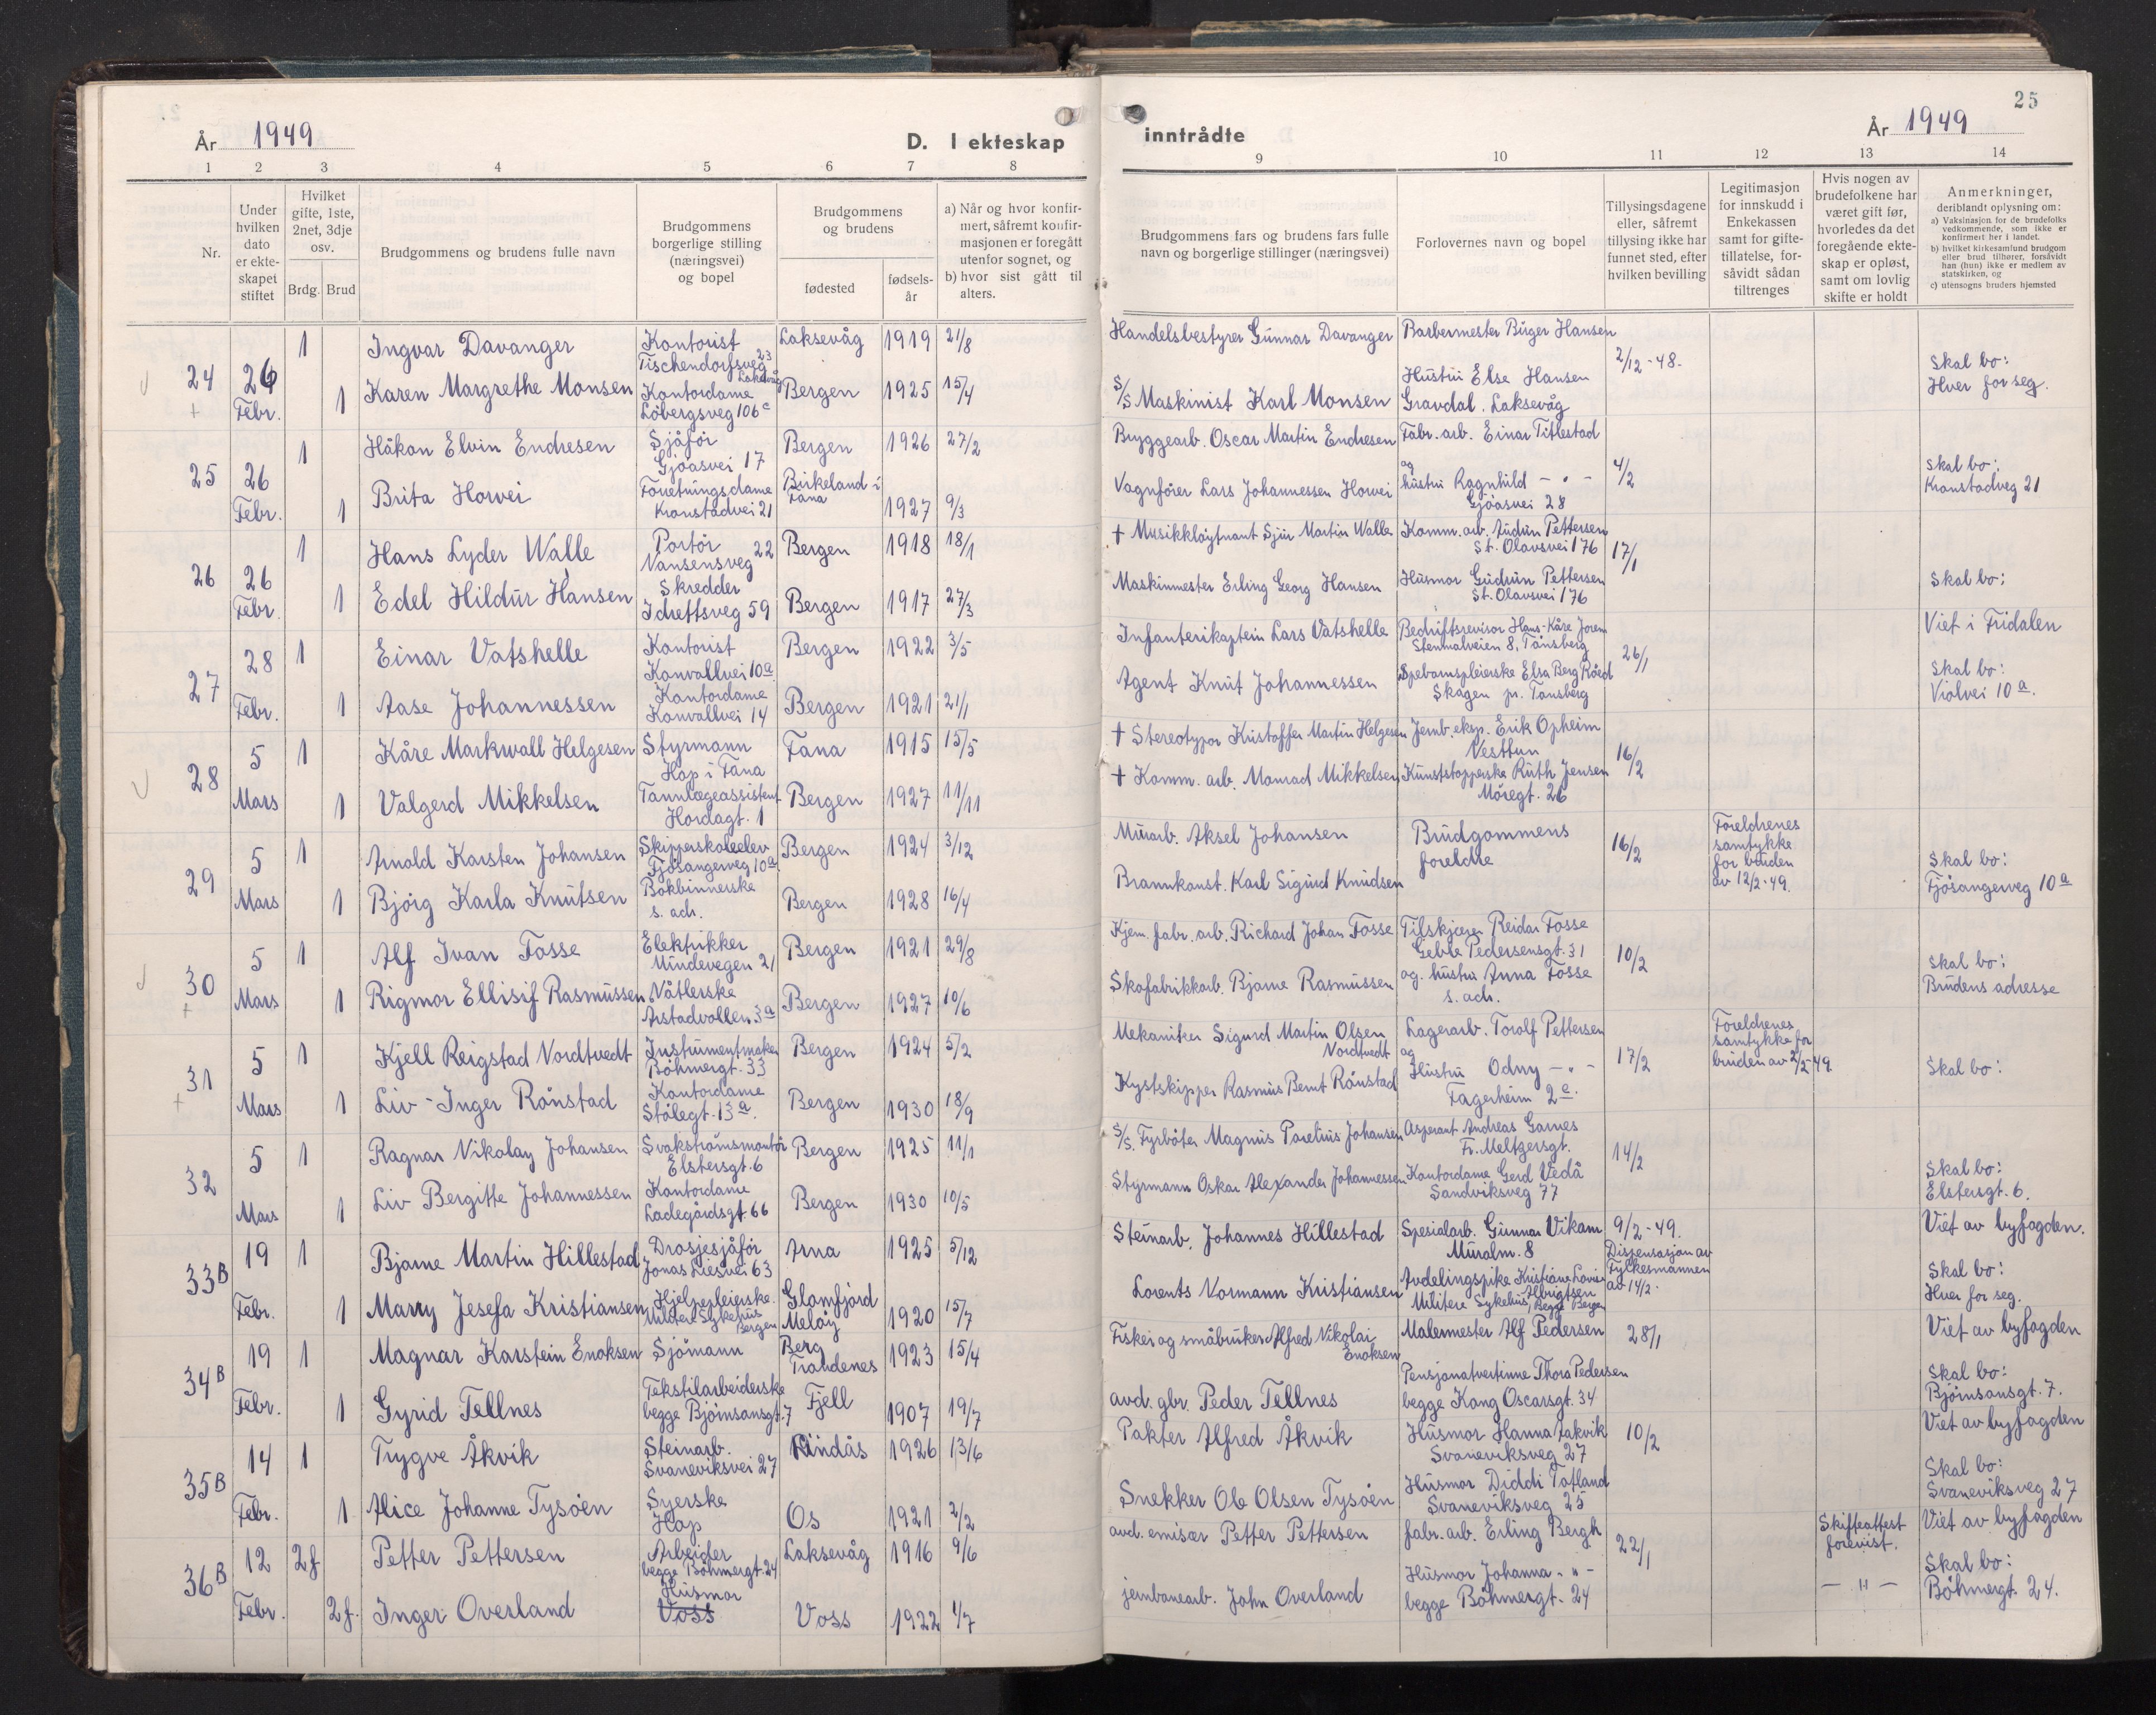 25
År 1949
D. I ekteskap
inntrådte
År 1949
1 2 3 4 5 6 7 8
9 10 11 12 13 14
Nr.
Under
hvilken
dato
er ekte-
skapet
stiftet
Hvilket
gifte, 1ste,
2net, 3dje
osv.
Brdg. Brud
Brudgommens og brudens fulle navn
Brudgommens
borgerlige stilling
(næringsvei)
og bopel
Brudgommens
og brudens
fødested
fødsels-
år
a) Når og hvor konfir-
mert, såfremt konfir-
masjonen er foregått
utenfor sognet, og
b) hvor sist gått til
alters.
Brudgommens fars og brudens fars fulle
navn og borgerlige stillinger (næringsvei)
Forlovernes navn og bopel
Tillysingsdagene
eller, såfremt
tillysing ikke har
funnet sted, efter
hvilken bevilling
Legitimasjon
for innskudd i
Enkekassen
samt for gifte-
tillatelse, for-
såvidt sådan
tiltrenges
Hvis nogen av
brudefolkene har
været gift før,
hvorledes da det
foregående ekte-
skap er opløst,
samt om lovlig
skifte er holdt
Anmerkninger,
deriblandt oplysning om:
a) Vaksinasjon for de brudefolks
vedkommende, som ikke er
konfirmert her i landet.
b) hvilket kirkesamfund brudgom
eller brud tilhører, forsåvidt
han (hun) ikke er medlem av
statskirken, og
c) utensogns bruders hjemsted
24
26
Febr.
1 Ingvar Davanger
Kontorist
Tischendorfsveg 23
Laksevåg
Laksevåg 1919 21/8
Handelsbestyrer Gunnar Davanger
Barbermester Birger Hansen
2/12-48.
1 Karen Margrethe Monsen
Kontordame
Løbergsveg 106c
Bergen 1925 15/4
S/S Maskinist Karl Monsen
Hustru Else Hansen
Gravdal. Laksevåg
Skal bo:
Hver for seg.
25
26
Febr.
1 Håkon Elvin Endresen
Sjåfør
Gjøasvei 17
Bergen 1926 27/2
Bryggearb. Oscar Martin Endresen
Fabr. arb. Einar Titlestad
4/2
1 Brita Horvei
Forretningsdame
Kronstadvei 21
Birkeland i
Fana
1927 9/3
Vognfører Lars Johannessen Horvei
og
hustru Ragnhild - " -
Gjøasvei 28
Skal bo:
Kronstadveg 21
26
26
Febr.
1 Hans Lyder Walle
Portør
Nansensveg 22
Bergen 1918 18/1
† Musikkløytnant Sjur Martin Walle
Komm. arb. Audun Pettersen
St. Olavsvei 176
17/1
1 Edel Hildur Hansen
Skredder
Idrettsveg 59
Bergen 1917 27/3
Maskinmester Erling Georg Hansen
Husmor Gudrun Pettersen
St. Olavsvei 176
Skal bo:
27
28
Febr.
1 Einar Vatshelle
Kontorist
Konvallvei 10a
Bergen 1922 3/5
Infanterikaptein Lars Vatshelle
Bedriftsrevisor Hans-Kåre Jorem
Stenmalveien 8, Tønsberg
26/1
Viet i Fridalen
1 Aase Johannessen
Kontordame
Konvallvei 14
Bergen 1921 21/1
Agent Knut Johannessen
Spebarnspleierske Elsa Berg Røed
Skagen pr. Tønsberg
Skal bo:
Violvei 10a.
28
5
Mars
1 Kåre Markwall Helgesen
Styrmann
Hop i Fana
Fana 1915 15/5
† Stereotypør Kristoffer Martin Helgesen
Jernb. eksp. Erik Opheim
Nesttun
16/2
1 Valgerd Mikkelsen
Tannlegeassistent
Hordagt. 1
Bergen 1927 11/11
† Komm. arb. Monrad Mikkelsen
Kunststopperske Ruth Jensen
Møregt. 26
29
5
Mars
1 Arnold Karsten Johansen
Skipperskoleelev
Fjøsangerveg 10a
Bergen 1924 3/12
Murarb. Aksel Johansen
Brudgommens
foreldre
16/2
Foreldrenes
samtykke
for bruden
av 12/2-49.
1 Bjørg Karla Knutsen
Bokbinnerske
s. adr.
Bergen 1928 16/4
Brannkonst. Karl Sigurd Knudsen
Skal bo:
Fjøsangerveg 10a
30
5
Mars
1 Alf Ivan Fosse
Elektrikker
Mindevegen 21
Bergen 1921 29/8
Kjem. fabr. arb. Richard Johan Fosse
Tilskjærer Reidar Fosse
Gebbe Pedersensgt. 31
10/2
1 Rigmor Ellisif Rasmussen
Nåtlerske
Årstadvollen 3a
Bergen 1927 10/6
Skofabrikkarb. Bjarne Rasmussen
og hustru Anna Fosse
s. adr.
Skal bo:
Brudens adresse
31
5
Mars
1 Kjell Reigstad Nordtvedt
Instrumentmaker
Bøhmergt. 33
Bergen 1924 5/2
Mekaniker Sigurd Martin Olsen
Nordtvedt
Lagerarb. Torolf Pettersen
17/2
Foreldrenes
samtykke for
bruden av 2/2-49.
1 Liv-Inger Rønstad
Kontordame
Stølegt. 13a.
Bergen 1930 18/9
Kystskipper Rasmus Bernt Rønstad
og
Hustru Odny - " -
Fagerheim 2a.
Skal bo:
32
5
Mars
1 Ragnar Nikolay Johansen
Svakstrømsmontør
Elstersgt. 6
Bergen 1925 11/1
S/S. Fyrbøter Magnus Parelius Johansen
Aspirant Andreas Garnes
Fr. Meltzersgt.
14/2
1 Liv Bergitte Johannessen
Kontordame
Ladegårdsgt. 66
Bergen 1930 10/5
Styrmann Oskar Alexander Johannessen
Kontordame Gerd Vedå
Sandviksveg 77
Skal bo:
Elstersgt. 6.
33B
19
Febr.
1 Bjarne Martin Hillestad
Drosjesjåfør
Jonas Liesvei 63
Arna 1925 5/12
Steinarb. Johannes Hillestad
Spesialarb. Gunnar Vikam
Muralm. 8
9/2-49.
Dispensasjon av
Fylkesmannen
av 14/2.
Viet av byfogden.
1 Marry Jesefa Kristiansen
Hjelpepleierske
Militære Sykehus
Bergen
Glomfjord
Meløy
1920 15/7
Lorents Normann Kristiansen
Avdelingspike Kristiane Lovise
Albrigtsen
Militære Sykehus, Begge Bergen
Skal bo:
Hver for seg.
34B
19
Febr.
1 Magnar Karstein Enoksen
Sjømann
Berg
Trondenes
1923 15/4
Fisker og småbruker Alfred Nikolai
Enoksen
Malermester Alf Pedersen
28/1
Viet av byfogden
1 Gyrid Tellnes
Tekstilarbeiderske
begge Bjørnsonsgt. 7
Fjell
1907 19/7
avd. gbr. Peder Tellnes
Pensjonatvertinne Thora Pedersen
begge Kong Oscarsgt. 34
Skal bo:
Bjørnsonsgt. 7.
35B
14
Febr.
1 Trygve Åkvik
Steinarb.
Svaneviksvei 27
Lindås 1926 13/6
Pakter Alfred Åkvik
Husmor Hanna Aakvik
Svaneviksveg 27
10/2
Viet av byfogden
1 Alice Johanne Tysøen
Syerske
Hop
Os 1921 2/2
Snekker Ole Olsen Tysøen
Husmor Diddi Tofland
Svaneviksveg 25
Skal bo:
Svaneviksveg 27
36B
12
Febr.
2f Petter Pettersen
Arbeider
begge Bøhmergt. 24
Laksevåg 1916 9/6
avd. emisær Petter Pettersen
fabr. arb. Erling Bergh
22/1
Skifteattest
forevist.
Viet av byfogden
2f. Inger Overland
Husmor
Voss
Voss 1922 1/7
jernbanearb. John Overland
Husmor Johanna - " -
begge Bøhmergt. 24
- " -
Skal bo:
Bøhmergt. 24.